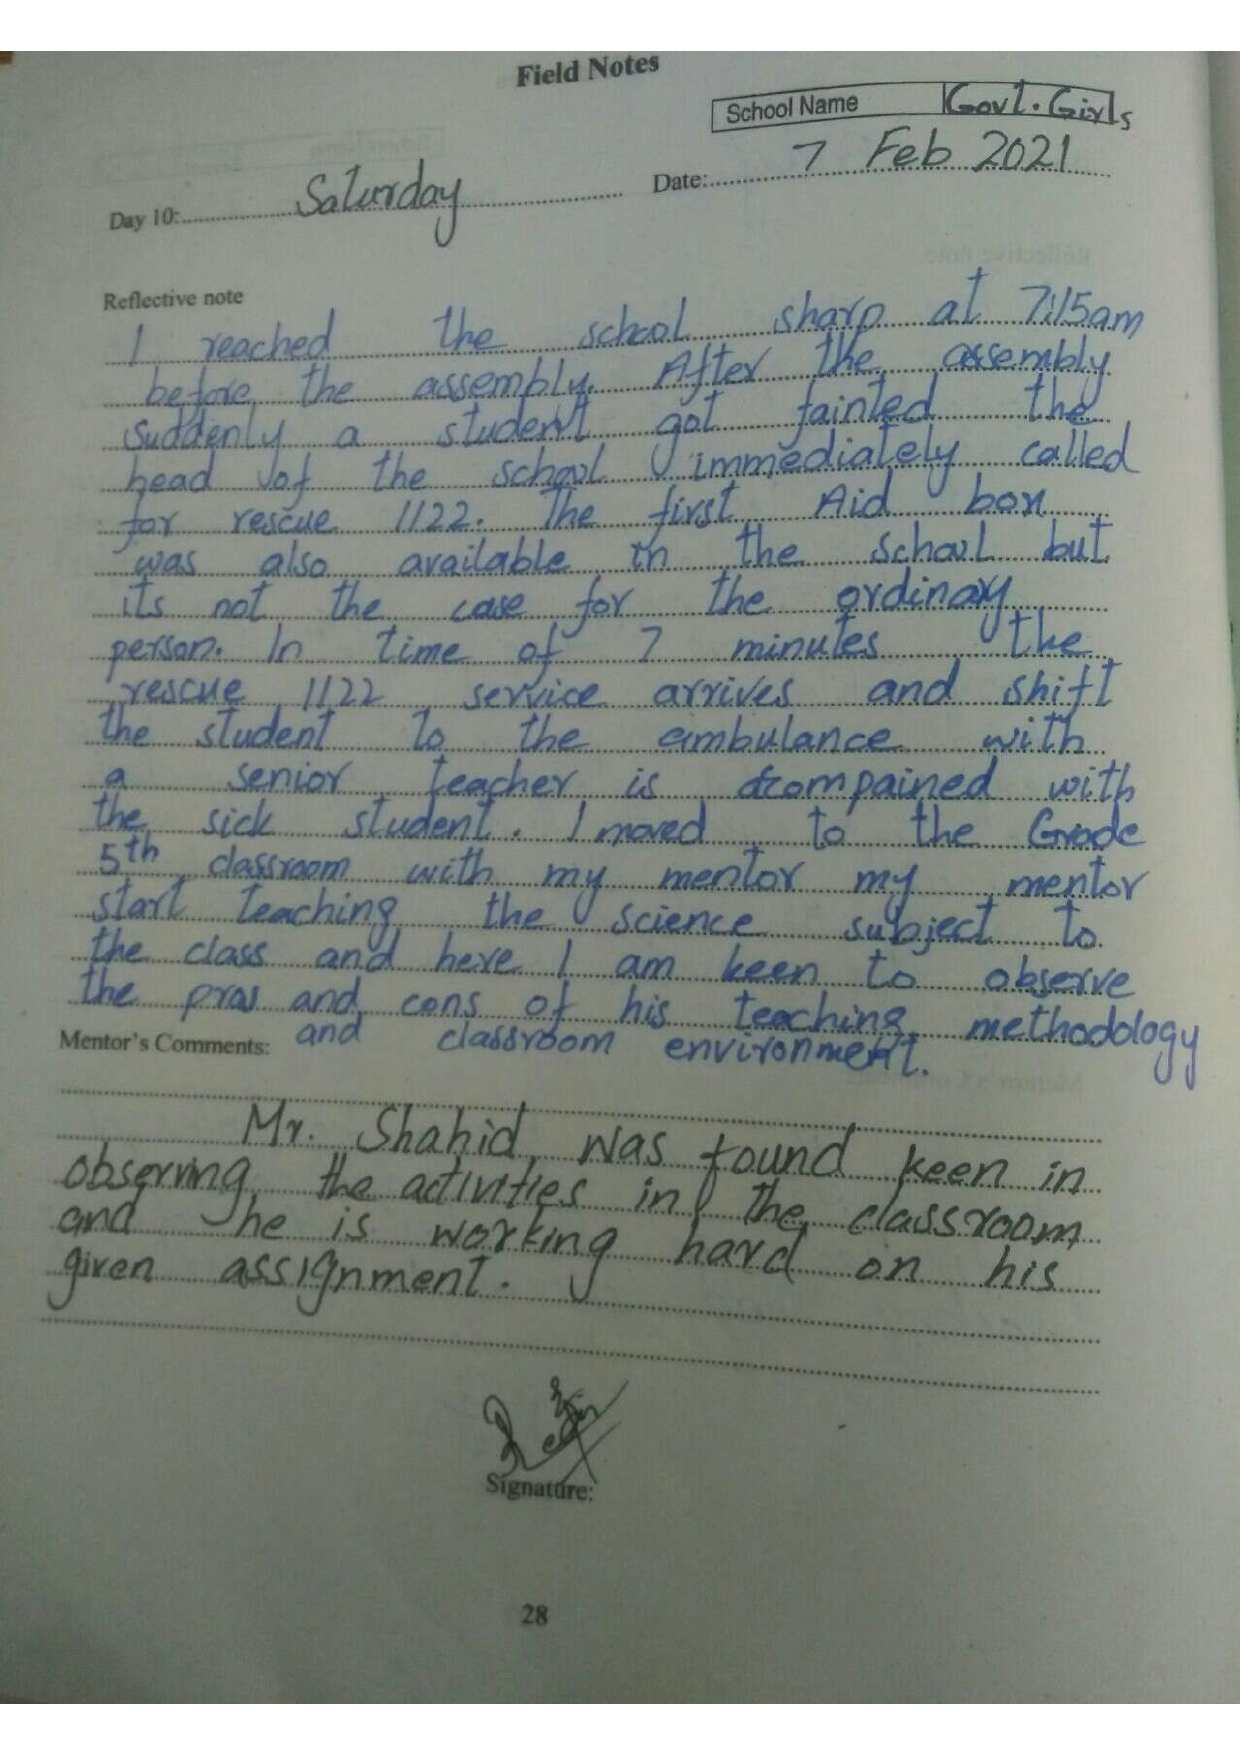 Field Notes
School Name Govt. Girls
Day 10: Saturday Date: 7 Feb 2021
Reflective note
I reached the school sharp at 7:15am
before the assembly. After the assembly
suddenly a student got fainted the
head of the school immediately called
for rescue 1122. The first Aid box
was also available in the school but
its not the case for the ordinary
person. In time of 7 minutes the
rescue 1122 service arrives and shift
the student to the ambulance with
a senior teacher is accompained with
the sick student. I moved to the Grade
5th classroom with my mentor my mentor
start teaching the science subject to
the class and here I am keen to observe
the pros and cons of his teaching methodology
and classroom environment.
Mentor's Comments:
Mr. Shahid was found keen in
observing the activities in the classroom
and he is working hard on his
given assignment.
Signature:
28